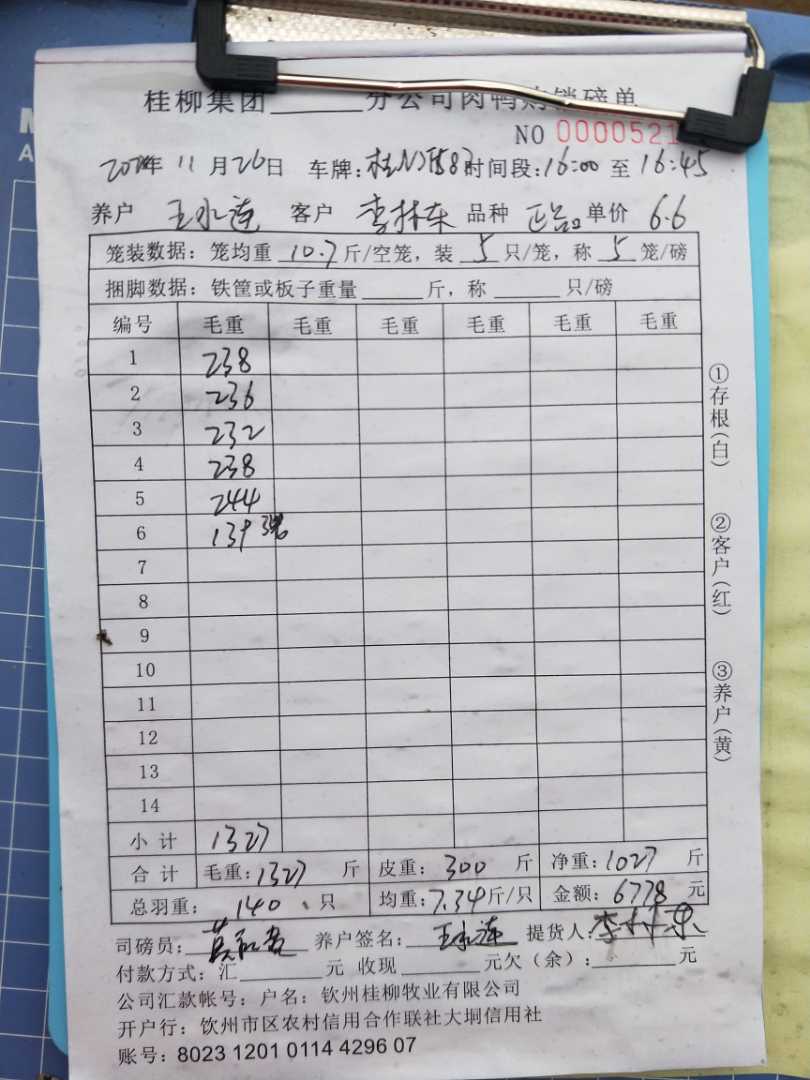 桂柳集团 分公司肉鸭购销磅单
NO 0000521
年 11 月 26 日 车牌: 桂N 时间段: 16:00 至 16:45
养户 王永莲 客户 李林东 品种 单价 6.6
笼装数据: 笼均重 10.7 斤/空笼, 装 5 只/笼, 称 5 笼/磅
捆脚数据: 铁筐或板子重量 斤, 称 只/磅
编号 毛重 毛重 毛重 毛重 毛重 毛重
1 238
2 236
3 232
4 238
5 244
6 139 3笼
7
8
9
10
11
12
13
14
小计 1327
合计 毛重: 1327 斤 皮重: 300 斤 净重: 1027 斤
总羽重: 140 只 均重: 7.34 斤/只 金额: 6778 元
司磅员: 养户签名: 王永莲 提货人: 李林东
付款方式: 汇 元 收现 元欠(余): 元
公司汇款帐号: 户名: 钦州桂柳牧业有限公司
开户行: 钦州市区农村信用合作联社大垌信用社
账号: 8023 1201 0114 4296 07
①存根(白)
②客户(红)
③养户(黄)